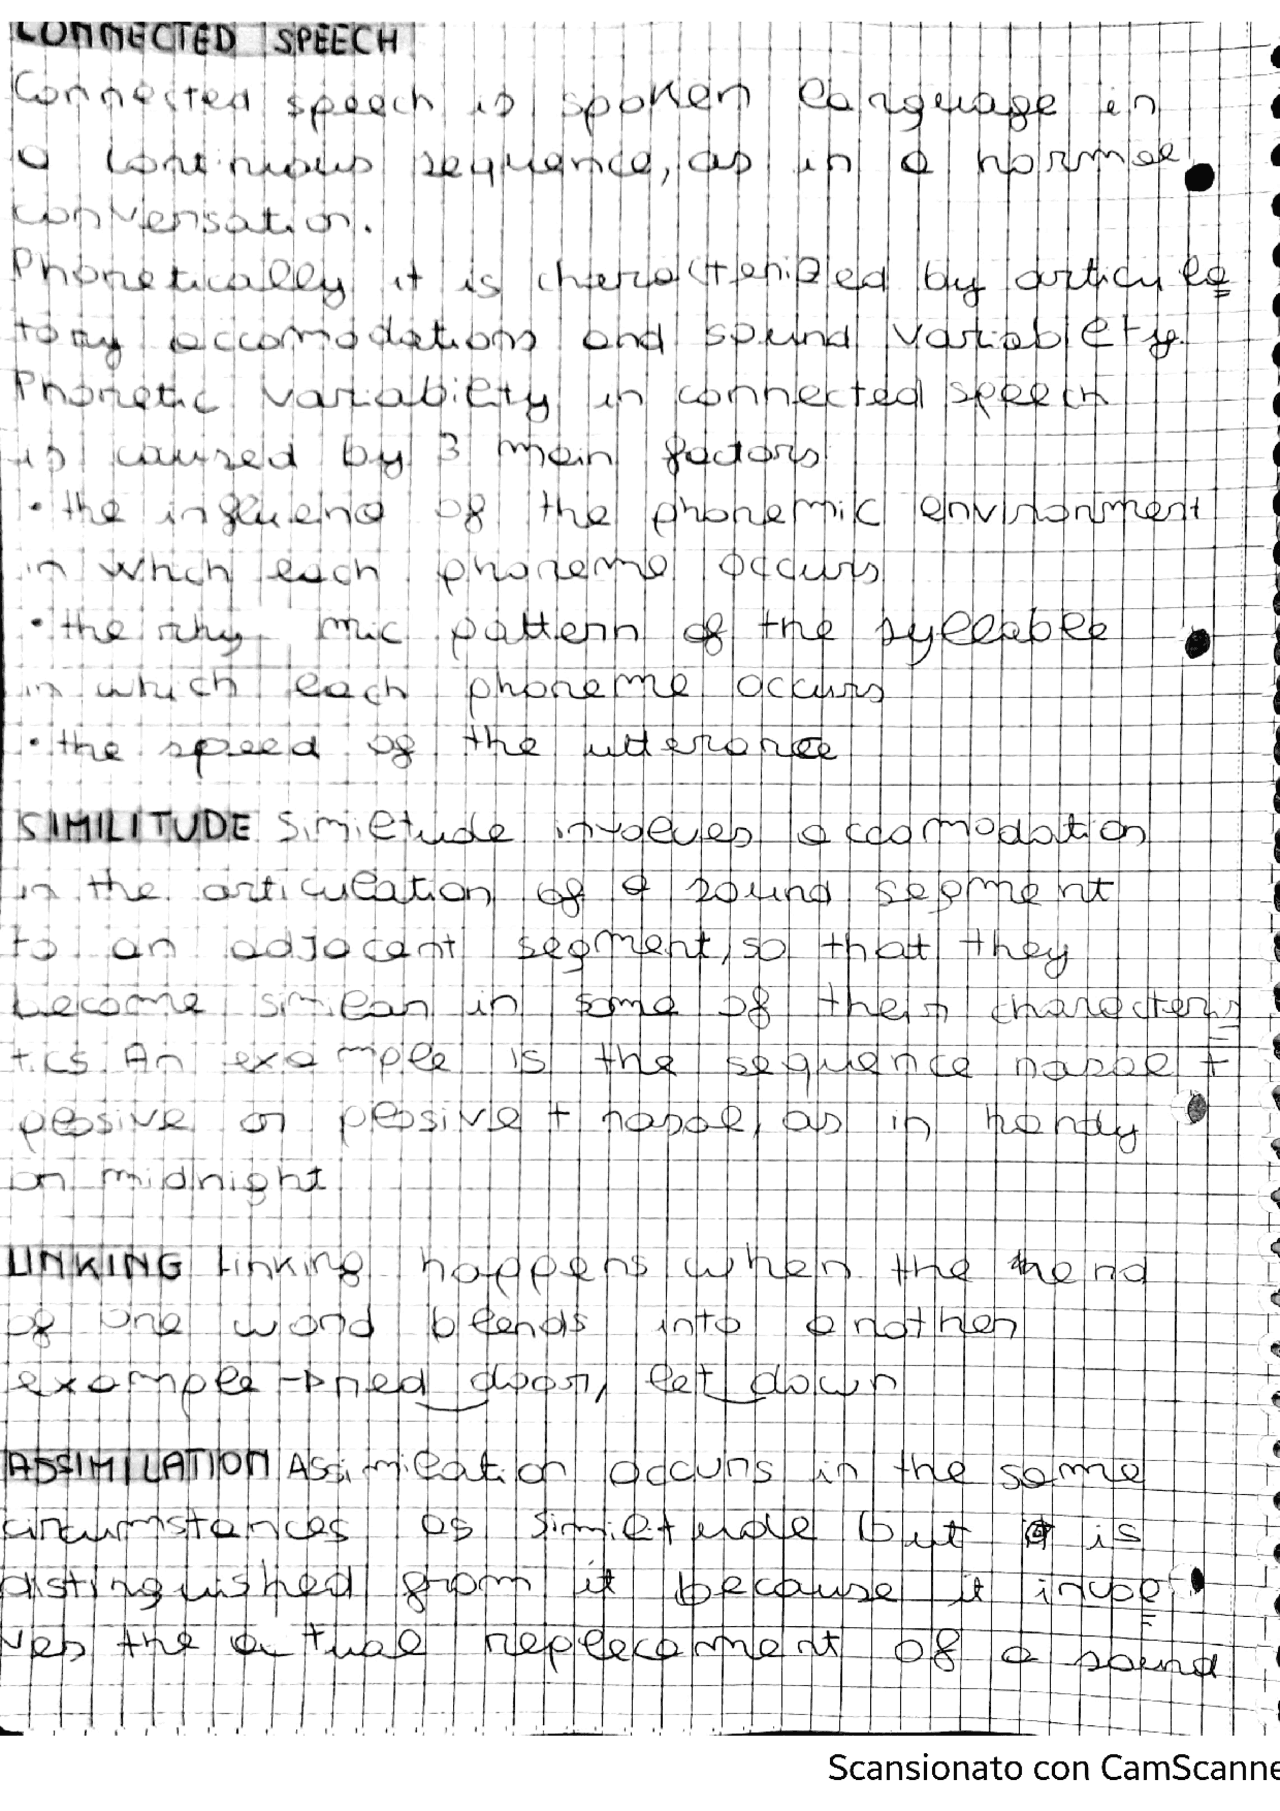 CONNECTED SPEECH
Connected speech is spoken language in
a continuous sequence, as in a normal
conversation.
Phonetically it is characterized by articula
tory accomodations and sound variability.
Phonetic variability in connected speech
is caused by 3 main factors
• the influence of the phonemic environment
in which each phoneme occurs
• the rhy mic pattern of the syllable
in which each phoneme occurs
• the speed of the utterance
SIMILITUDE Similitude involves accomodation
in the articulation of a sound segment
to an adjacent segment, so that they
become similar in some of their characteris
tics. An example is the sequence nasal +
plosive or plosive + nasal, as in handy
or midnight
LINKING Linking happens when the end
of one word blends into another
example - door, let down
ASSIMILATION Assimilation occurs in the same
circumstances as similitude but is
distinguished from it because it invol
ves the actual replacement of a sound
Scansionato con CamScanne